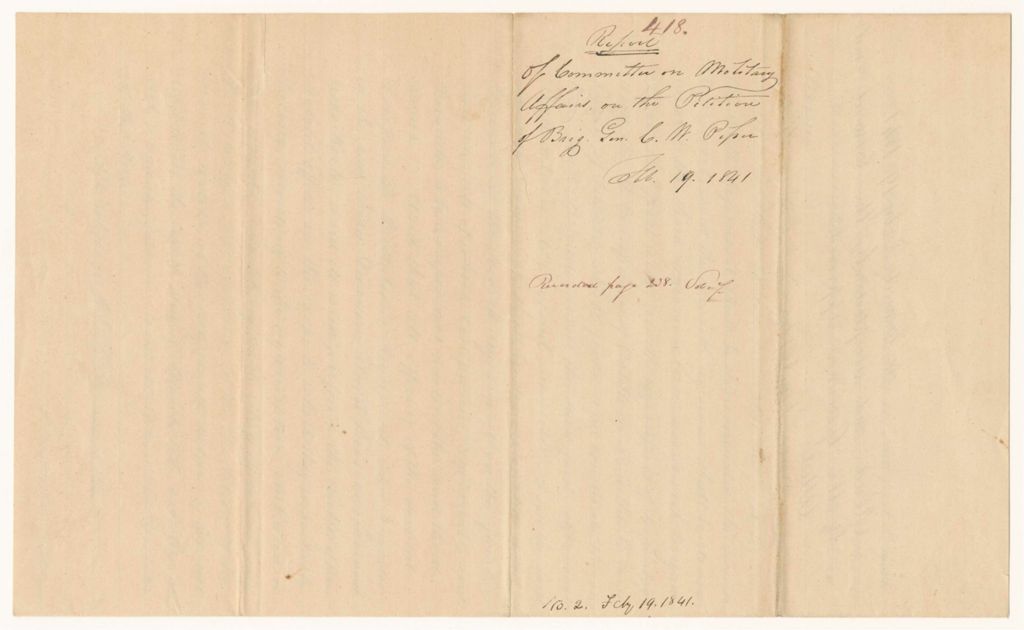 418.
Report
Of Committee on Military
Affairs, on the Petition
of Brig. Gen. C. W. Piper
Feb. 19. 1841
Recorded page 238.
No. 2. Feby 19. 1841.